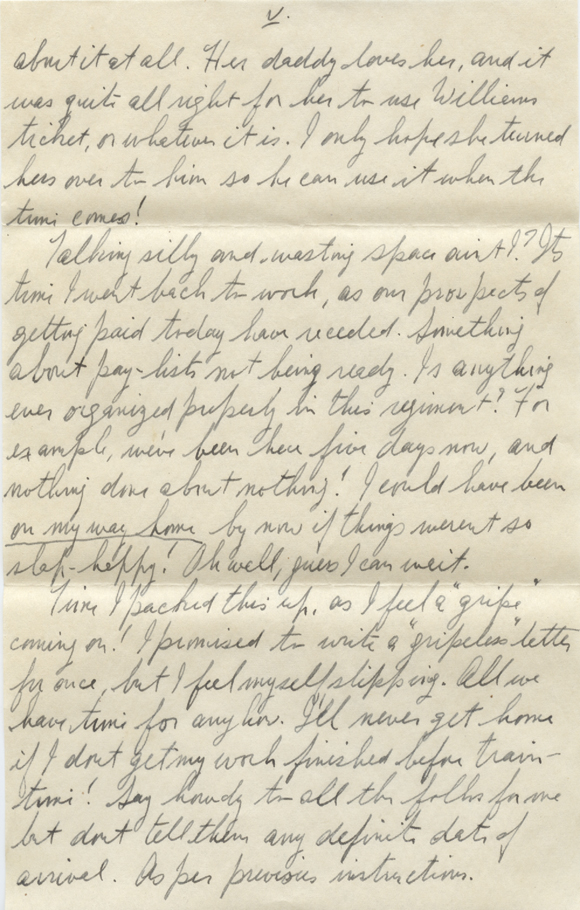 V.
about it at all. Her daddy loves her, and it
was quite all right for her to use Williams
ticket, or whatever it is. I only hope she turned
hers over to him so he can use it when the
time comes!
Talking silly and wasting space ain't I? Its
time I went back to work, as our prospects of
getting paid today have receded. Something
about pay-lists not being ready. Is anything
ever organized properly in this regiment? For
example, we've been here five days now, and
nothing done about nothing! I could have been
on my way home by now if things weren't so
slap-happy! Oh well, guess I can wait.
Time I packed this up, as I feel a "gripe"
coming on! I promised to write a "gripeless" letter
for once, but I feel myself slipping. All we
have time for anyhow. I'll never get home
if I dont get my work finished before train-
time! Say howdy to all the folks for me
but dont tell them any definite date of
arrival. As per previous instructions.